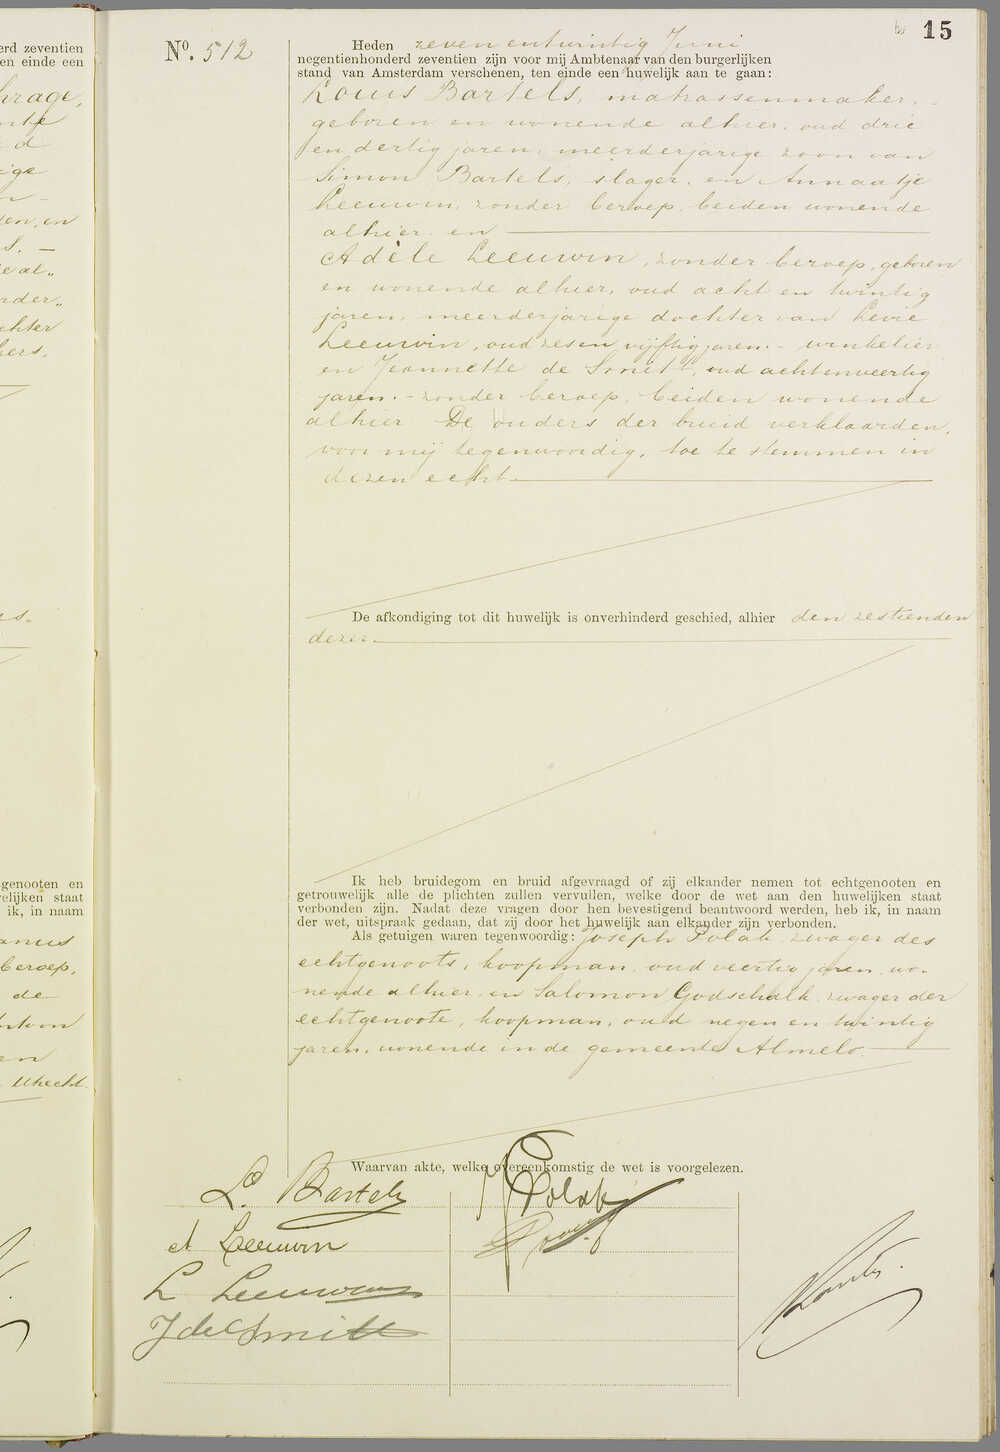 15
erd zeventien
en einde een
hrage,
d
ige
den, en
S. —
eal„
nder„
chter
hers,
genooten en
elijken staat
ik, in naam
anus
beroep,
de
ntoon
Utrecht.
No. 512
Heden zeven en twintig Juni
negentienhonderd zeventien zijn voor mij Ambtenaar van den burgerlijken
stand van Amsterdam verschenen, ten einde een huwelijk aan te gaan:
Louis Bartels, matrassenmaker,
geboren en wonende alhier, oud drie
en dertig jaren, meerderjarige zoon van
Simon Bartels, slager, en Annaatje
Leeuwin, zonder beroep, beiden wonende
alhier en
Adèle Leeuwin, zonder beroep, geboren
en wonende alhier, oud acht en twintig
jaren, meerderjarige dochter van Levie
Leeuwin, oud zes en vijftig jaren. - winkelier
en Jeannette de Smitt, oud achtenveertig
jaren. - zonder beroep, beiden wonende
alhier De ouders der bruid verklaarden,
voor mij tegenwoordig, toe te stemmen in
dezen echt
De afkondiging tot dit huwelijk is onverhinderd geschied, alhier den zestienden
dezer.
Ik heb bruidegom en bruid afgevraagd of zij elkander nemen tot echtgenooten en
getrouwelijk alle de plichten zullen vervullen, welke door de wet aan den huwelijken staat
verbonden zijn. Nadat deze vragen door hen bevestigend beantwoord werden, heb ik, in naam
der wet, uitspraak gedaan, dat zij door het huwelijk aan elkander zijn verbonden.
Als getuigen waren tegenwoordig: Joseph Polak, zwager des
echtgenoots, koopman, oud veertig jaren, wo-
nende alhier en Salomon Godschalk, zwager der
echtgenoote, koopman, oud negen en twintig
jaren, wonende in de gemeente Almelo.
Waarvan akte, welke overeenkomstig de wet is voorgelezen.
L. Bartels
A Leeuwin
L Leeuwin
J de Smitt
Polak